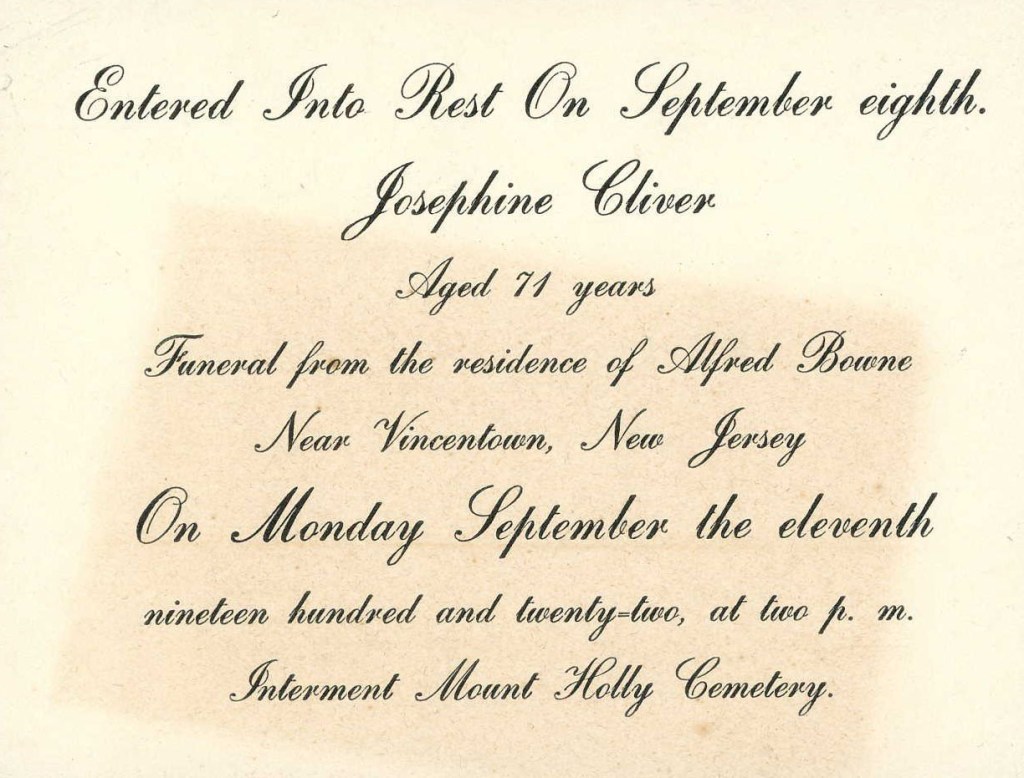 Entered Into Rest On September eighth.
Josephine Cliver
Aged 71 years
Funeral from the residence of Alfred Bowne
Near Vincentown, New Jersey
On Monday September the eleventh
nineteen hundred and twenty=two, at two p. m.
Interment Mount Holly Cemetery.